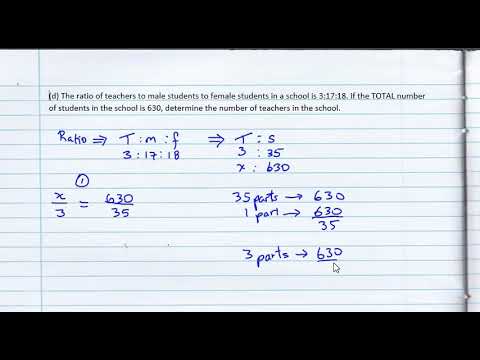 (d) The ratio of teachers to male students to female students in a school is 3:17:18. If the TOTAL number
of students in the school is 630, determine the number of teachers in the school.
Ratio ⇒ T : m : f ⇒ T : s
3 : 17 : 18 3 : 35
x : 630
①
x/3 = 630/35
35 parts → 630
1 part → 630/35
3 parts → 630